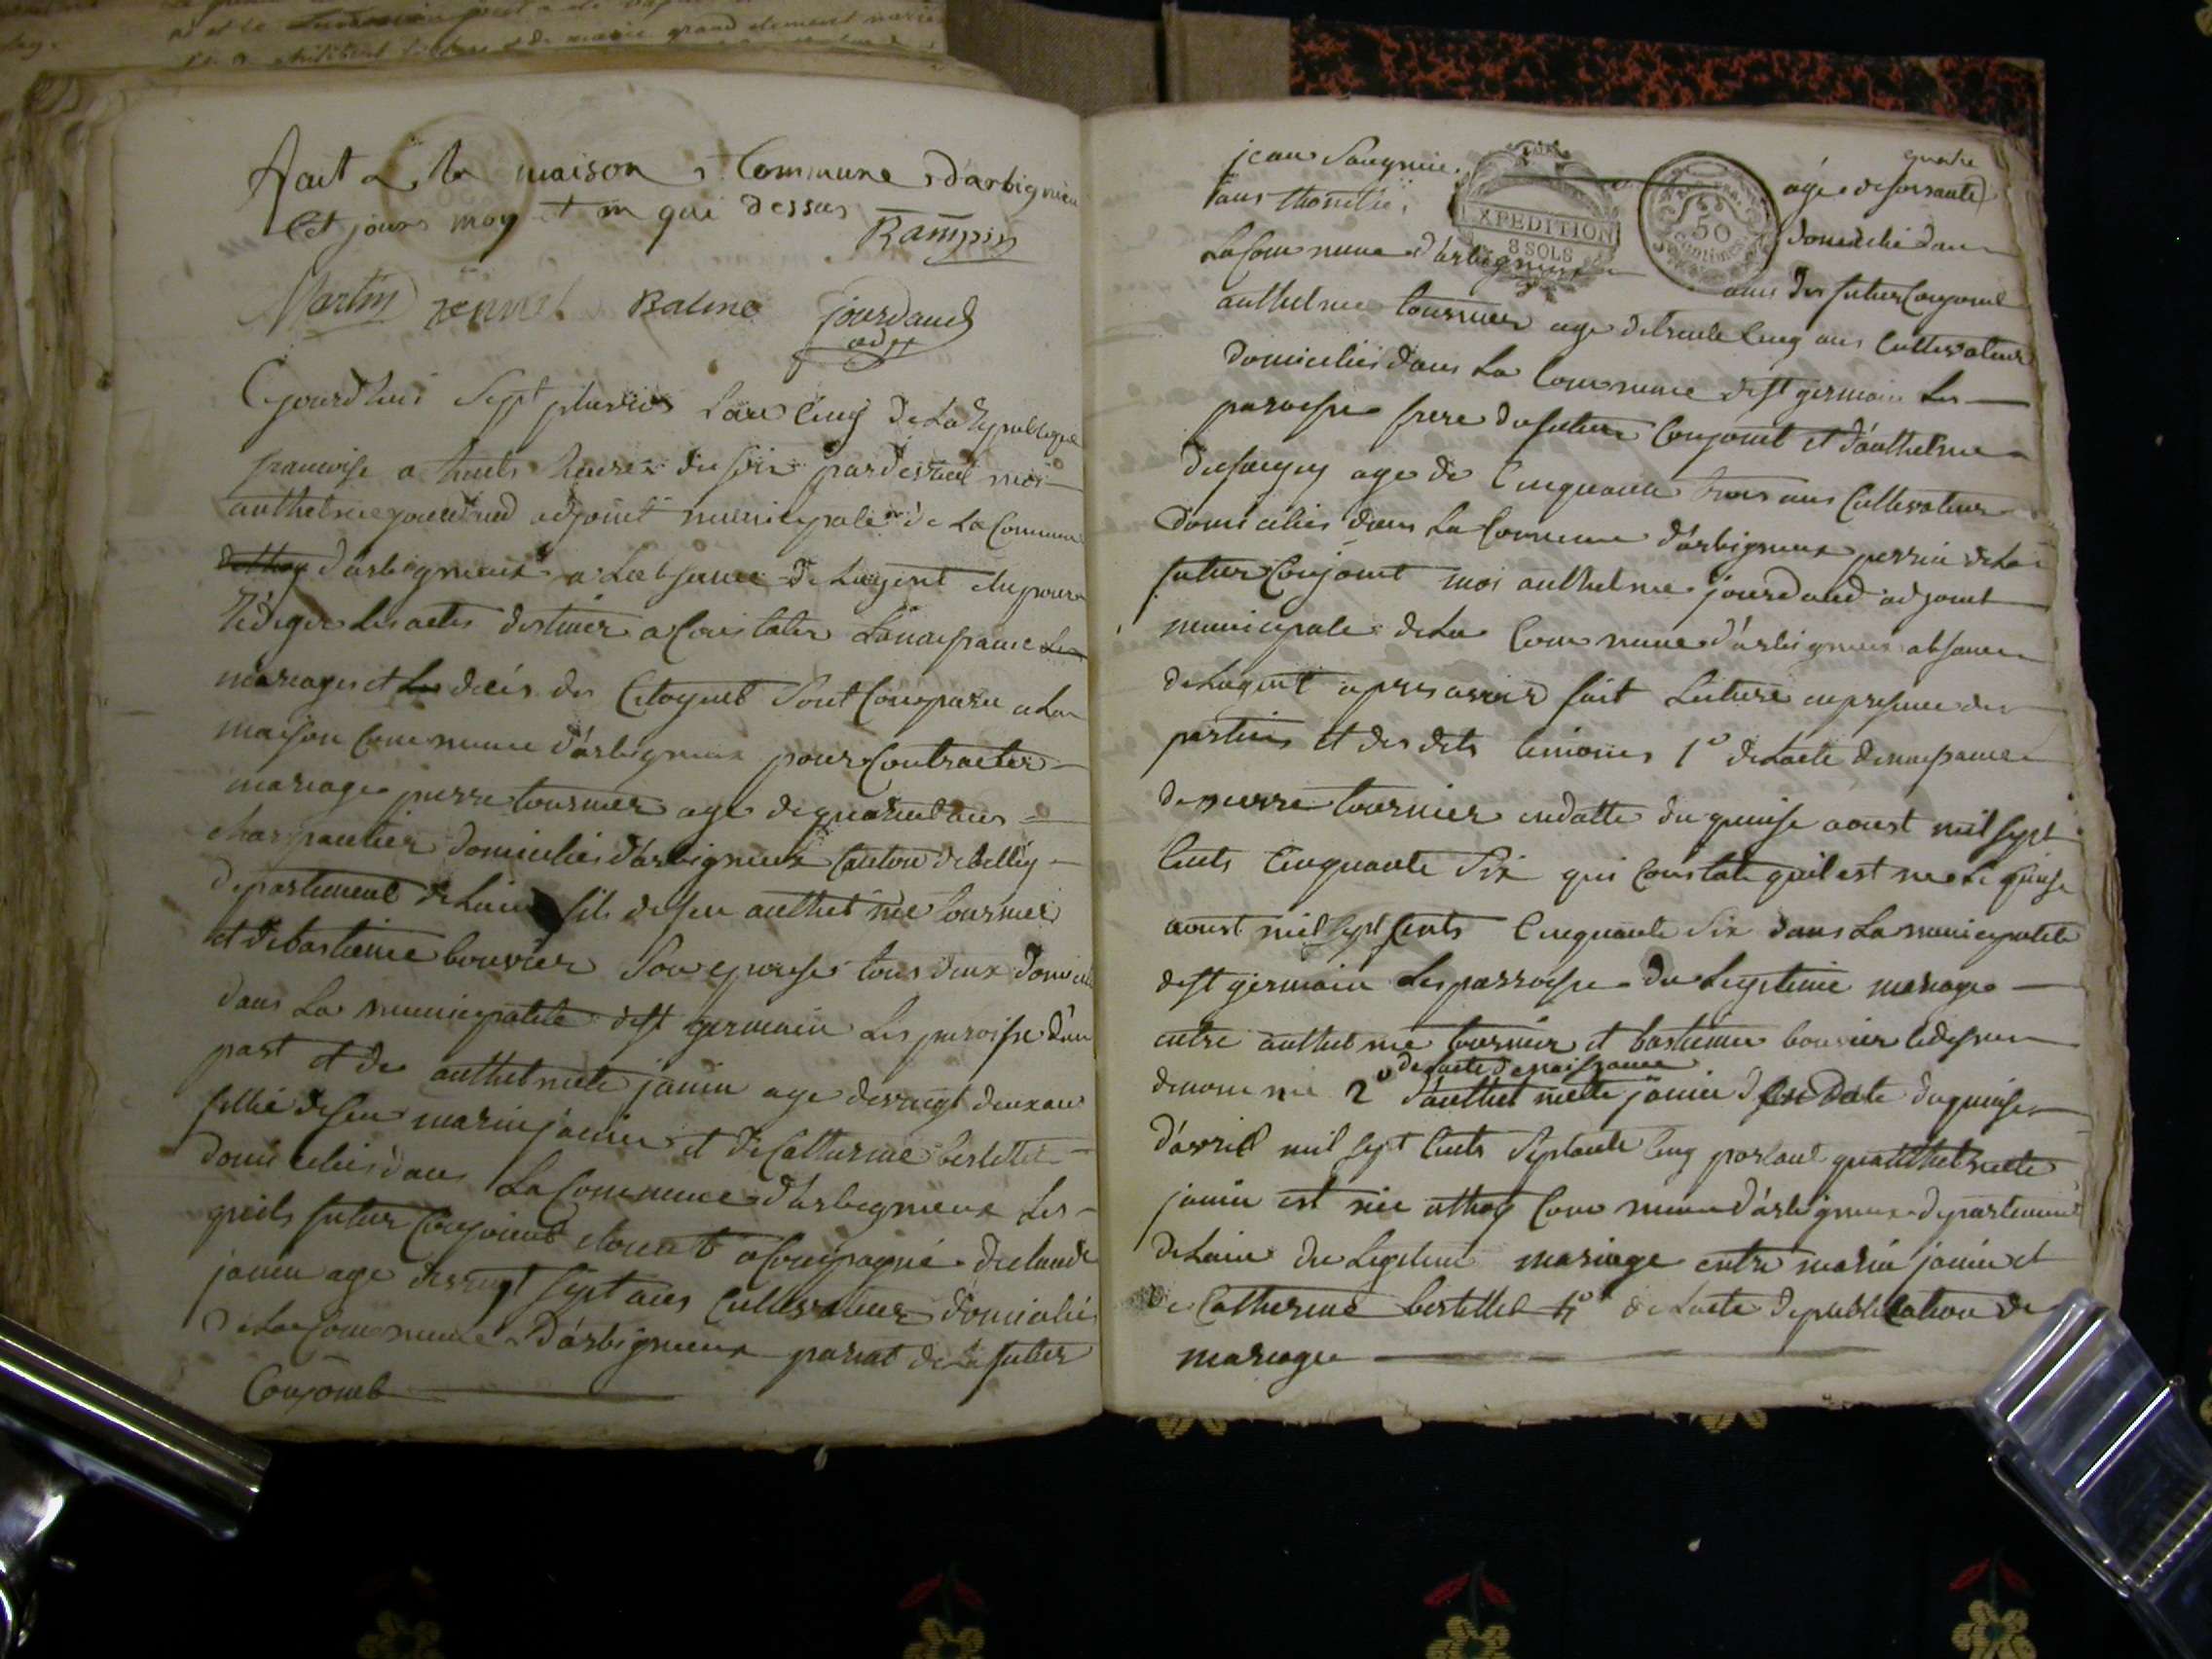 Fait à la maison Commune d'arbignieu
Cet jour moy et m qui dessus
Rampin
Martin jennet Balme jourdand
adjt
Cejourdhui sept pluvios Lan cinq de La Republique
francoise a huit heures du soir pardevant moi
anthelme jourdand adjoint municipale de La Commune
d'arbignieux a Labsance de Lagent elu pour
Rediger Les actes destinér a Constater Lá naissance Les
mariages et Les decés des Citoyens sont Comparu a La
maison Commune d'arbignieux pour Contracter
mariage pierre tournier age de quarent ans
charpantier domicilié d'arbignieux Canton de belley
departement de Lain fils de feu anthelme tournier
et de bastienne bouvier son epouse tous deux domicilié
dans La municipalité de st germain Les paroisse d'une
part et de anthelmete janin age de vingt deux ans
fillie de feu marin janin et de Catterine bertellet
domiciliés dans La Commune d'arbignieux Les
quels futur Conjoint etoient acompagné de claude
janin age de vingt sept ans Cultivateur domicilié
de La Commune d'arbignieux parant de La futur
Conjoint
jean Saugnie quatre
age de soixante
ans domicilié dans
EXPEDITION
8 SOLS
50
Centimes
La Commune d'arbignieux amis des futur Conjoint
anthelme tournier age de trente cinq ans Cultivateur
domicilies dans La Commune de st germain Les
paroisse frere du future Conjoint et d'anthelme
age de Cinquante trois ans Cultivateur
domicilies dans La Commune d'arbignieux de La
futur Conjoint moi anthelme jourdand adjoint
municipale de La Commune d'arbignieux absance
de Lagent apres avoir fait Lecture en presance des
parties et des dits temoins 1° de Lacte de naissance
de pierre tournier en datte du quinse aoust mil sept
Cents Cinquante Six qui Constate quil est ne Le quinse
aoust mil sept Cents Cinquante Six dans La municipalité
de st germain Les parroisse du Legitime mariage
entre anthelme tournier et bastienne bouvier
denomme 2° de Lacte de naissance
d'anthelmette janin en Date du quinse
d'avril mil sept Cents Septante Cinq portant qu'anthelmette
janin est née athoy Commune d'arbignieux departement
de Lain du Legitime mariage entre marin janin et
de Catherine bertellet de Lacte de publication de
mariage